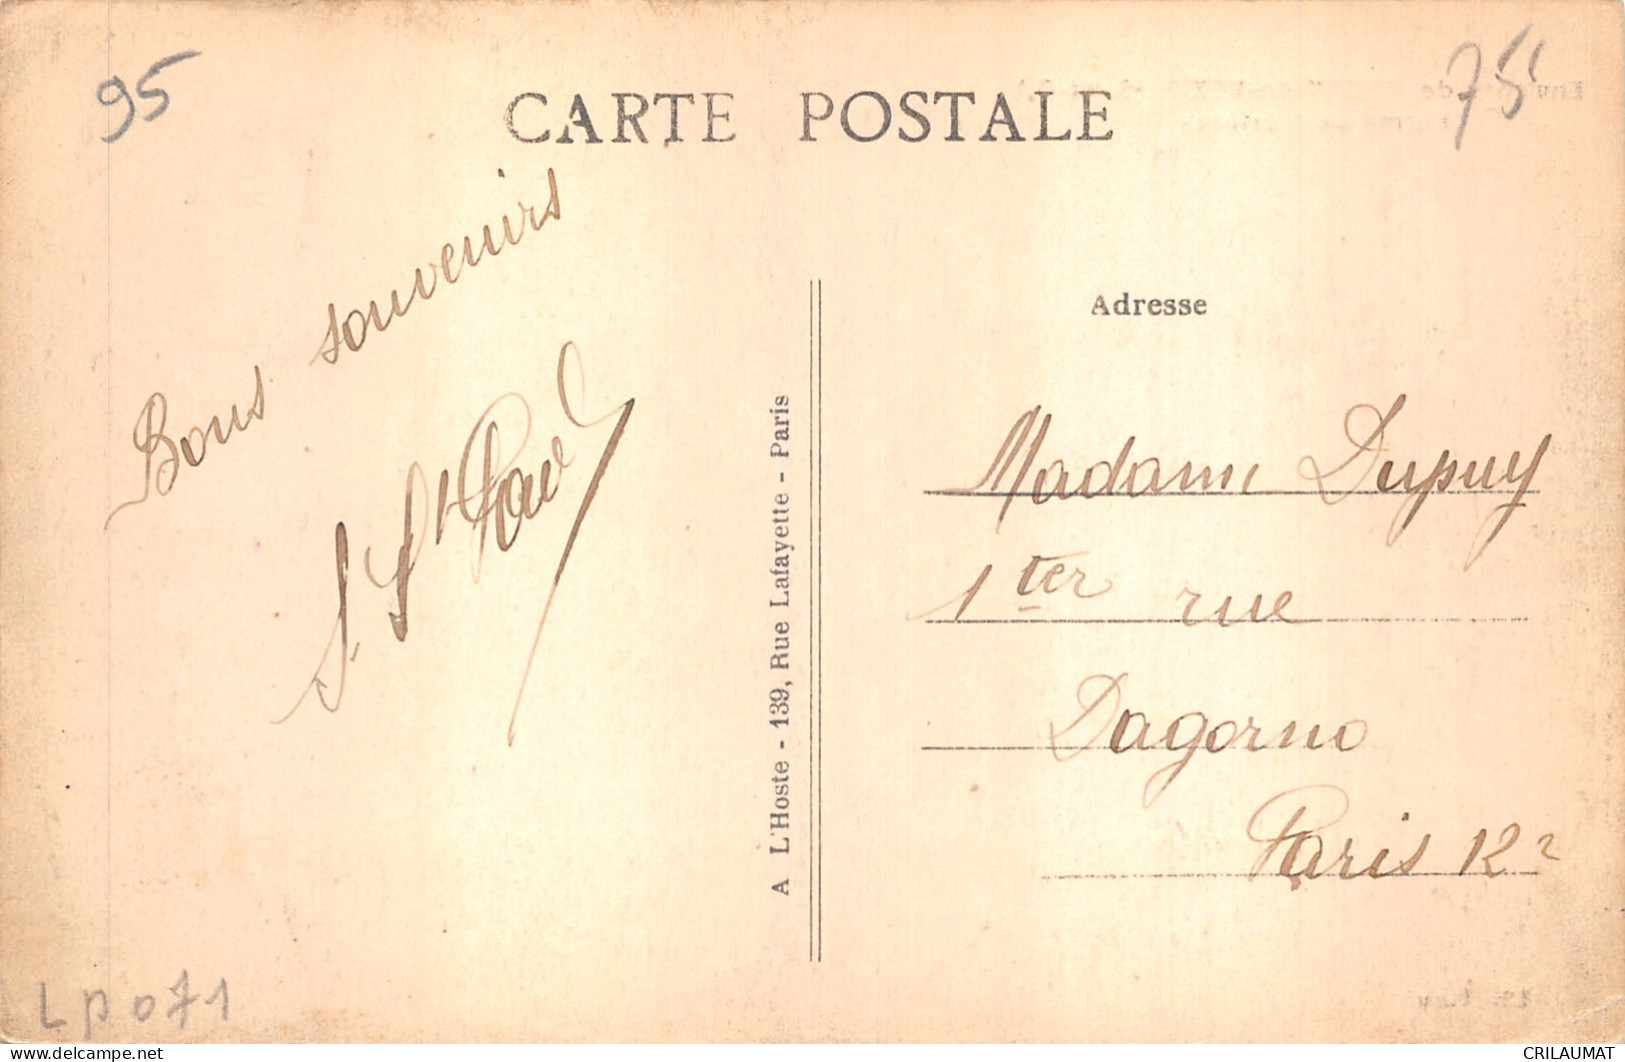 95
75
CARTE POSTALE
Bons souvenirs
A L'Hoste - 139, Rue Lafayette - Paris
Adresse
Madame Dupuy
1 ter rue
Dagorno
Paris 12e
LP 071
CRILAUMAT